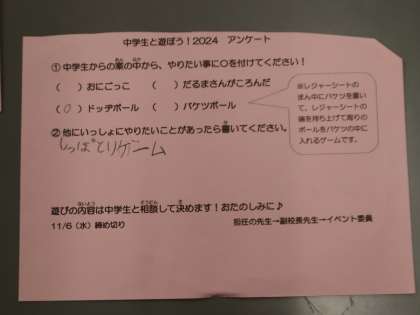 中学生と遊ぼう!2024 アンケート
① 中学生からの案の中から、やりたい事に○を付けてください!
( )おにごっこ ( )だるまさんがころんだ
(○)ドッヂボール ( )バケツボール
※レジャーシートの
まん中にバケツを置い
て、レジャーシートの
端を持ち上げて周りの
ボールをバケツの中に
入れるゲームです。
② 他にいっしょにやりたいことがあったら書いてください。
しっぽとりゲーム
遊びの内容は中学生と相談して決めます!おたのしみに♪
11/6(水)締め切り 担任の先生→副校長先生→イベント委員